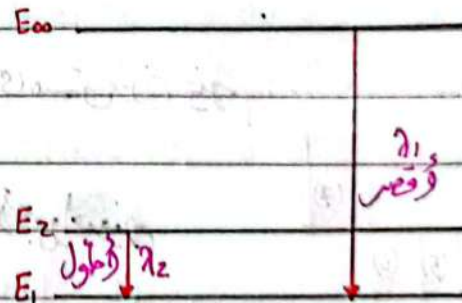 E∞
λ1
أقصر
E2
أطول λ2
E1